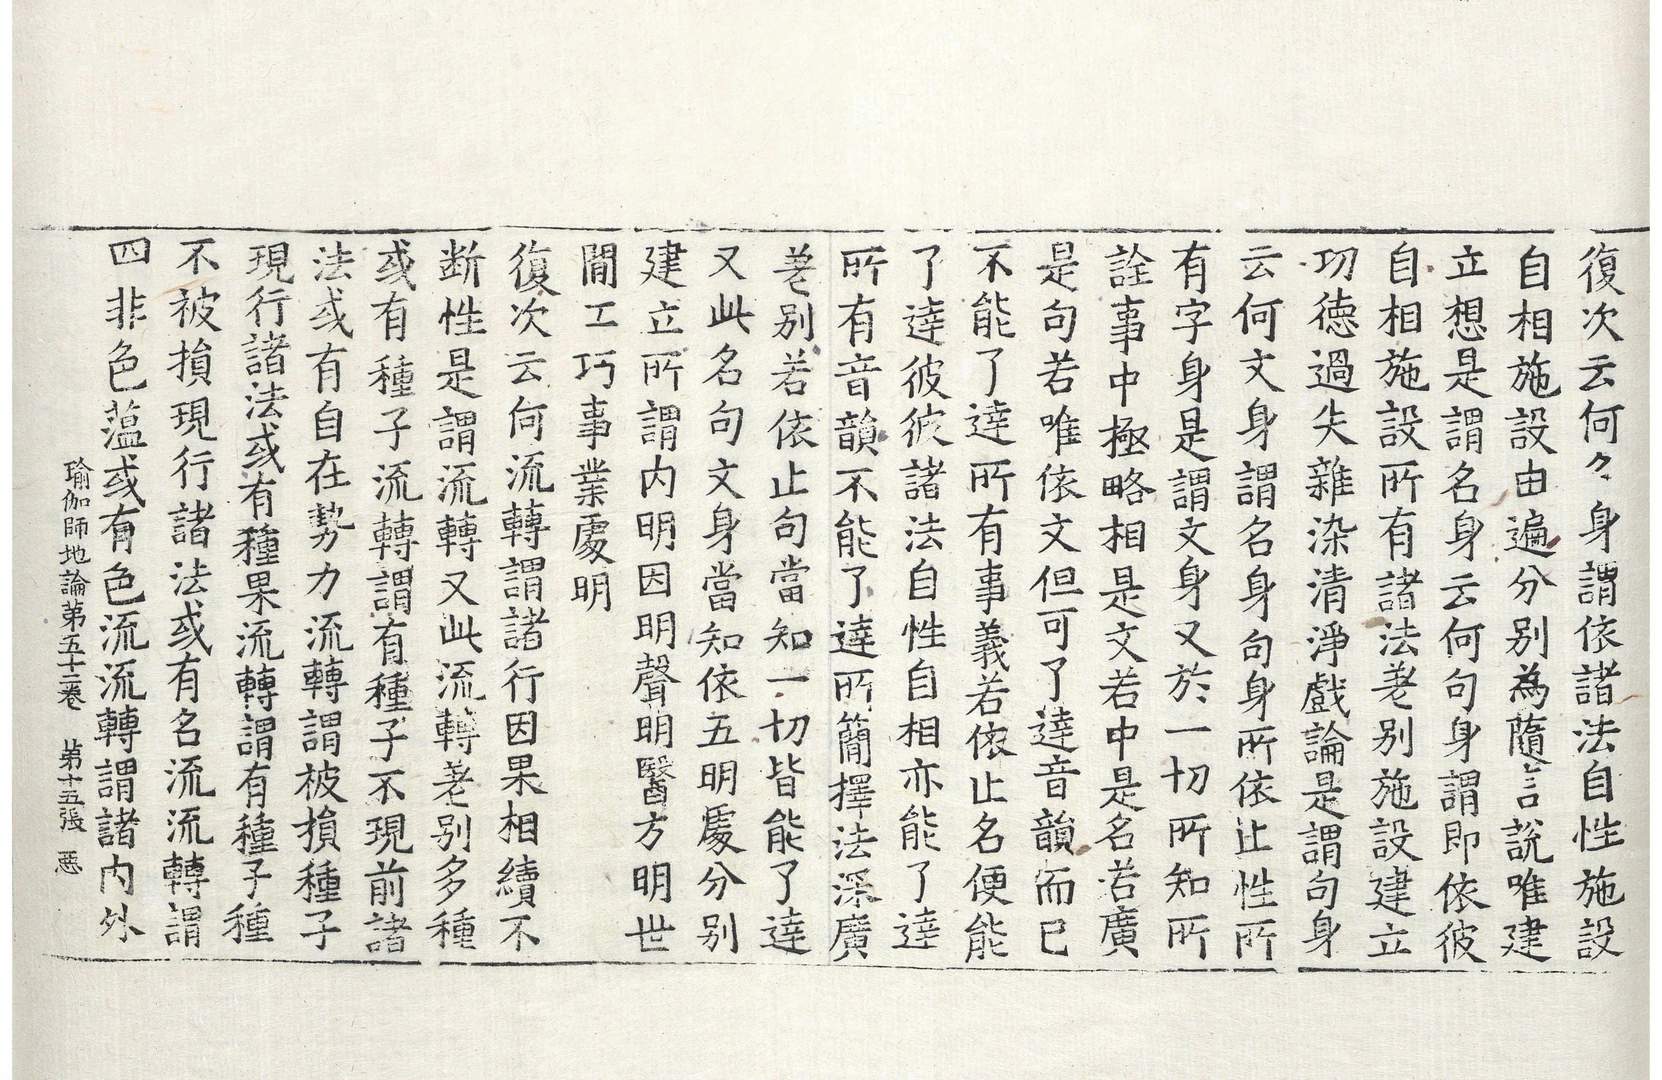 復次云何々身謂依諸法自性施設
自相施設由遍分別為隨言說唯建
立想是謂名身云何句身謂即依彼
自相施設所有諸法差別施設建立
功德過失雜染清淨戲論是謂句身
云何文身謂名身句身所依止性所
有字身是謂文身又於一切所知所
詮事中極略相是文若中是名若廣
是句若唯依文但可了達音韻而已
不能了達所有事義若依止名便能
了達彼彼諸法自性自相亦能了達
所有音韻不能了達所簡擇法深廣
差別若依止句當知一切皆能了達
又此名句文身當知依五明處分別
建立所謂内明因明聲明醫方明世
間工巧事業處明
復次云何流轉謂諸行因果相續不
断性是謂流轉又此流轉差別多種
或有種子流轉謂有種子不現前諸
法或有自在勢力流轉謂被損種子
現行諸法或有種果流轉謂有種子種
不被損現行諸法或有名流流轉謂
四非色薀或有色流流轉謂諸内外
瑜伽師地論第五十二卷　第十五張　惡